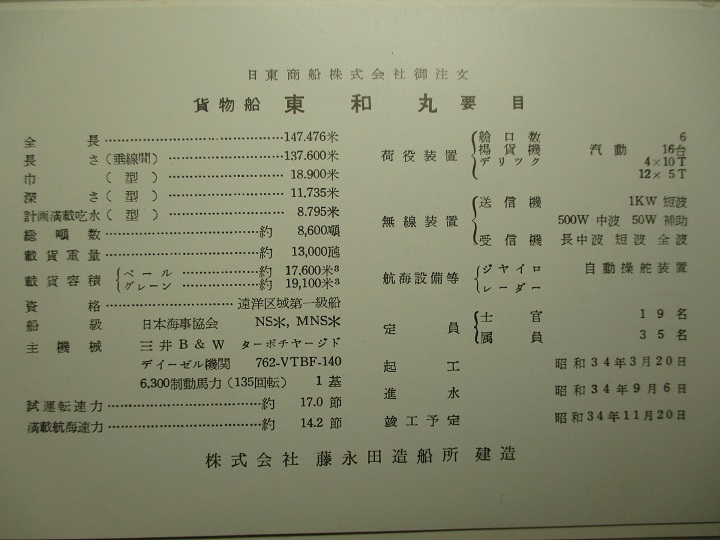 日東商船株式会社御注文
貨物船 東和丸 要目
全長 147.476米
長さ(垂線間) 137.600米
巾(型) 18.900米
深さ(型) 11.735米
計画満載吃水(型) 8.795米
総噸数 約 8,600噸
載貨重量 約 13,000瓲
載貨容積 ベール 約 17,600米³
グレーン 約 19,100米³
資格 遠洋区域第一級船
船級 日本海事協会 NS✻, MNS✻
主機械 三井B&W ターボチャージド
デイーゼル機関 762-VTBF-140
6,300制動馬力(135回転) 1基
試運転速力 約 17.0 節
満載航海速力 約 14.2 節
荷役装置 艙口数 6
揚貨機 汽動 16台
デリック 4×10T
12×5T
無線装置 送信機 1KW 短波
500W 中波 50W 補助
受信機 長中波 短波 全波
航海設備等 ジヤイロ 自動操舵装置
レーダー
定員 士官 19名
属員 35名
起工 昭和34年3月20日
進水 昭和34年9月6日
竣工予定 昭和34年11月20日
株式会社 藤永田造船所 建造